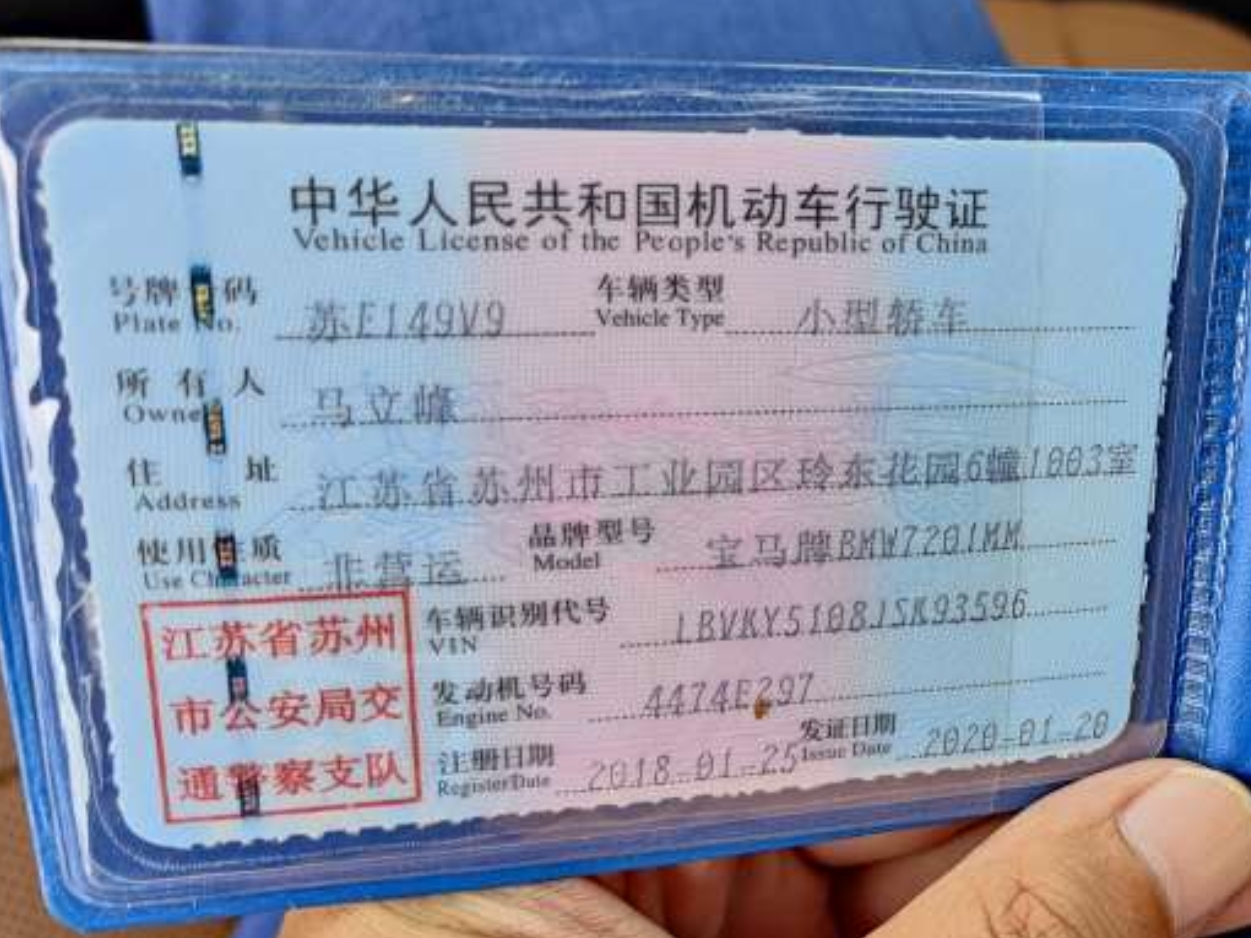 中华人民共和国机动车行驶证
Vehicle License of the People's Republic of China
号牌 码 苏E149V9 车辆类型 小型轿车
Plate No. Vehicle Type
所有人 马立幢
Owner
住址 江苏省苏州市工业园区玲东花园6幢1003室
Address
使用性质 非营运 品牌型号 宝马牌BMW7201MM
Use Character Model
江苏省苏州
市公安局交
通警察支队
车辆识别代号 LBVKY5108JSK93596
VIN
发动机号码 4474E297
Engine No.
注册日期 2018-01-25 发证日期 2020-01-20
RegisterDate Issue Date